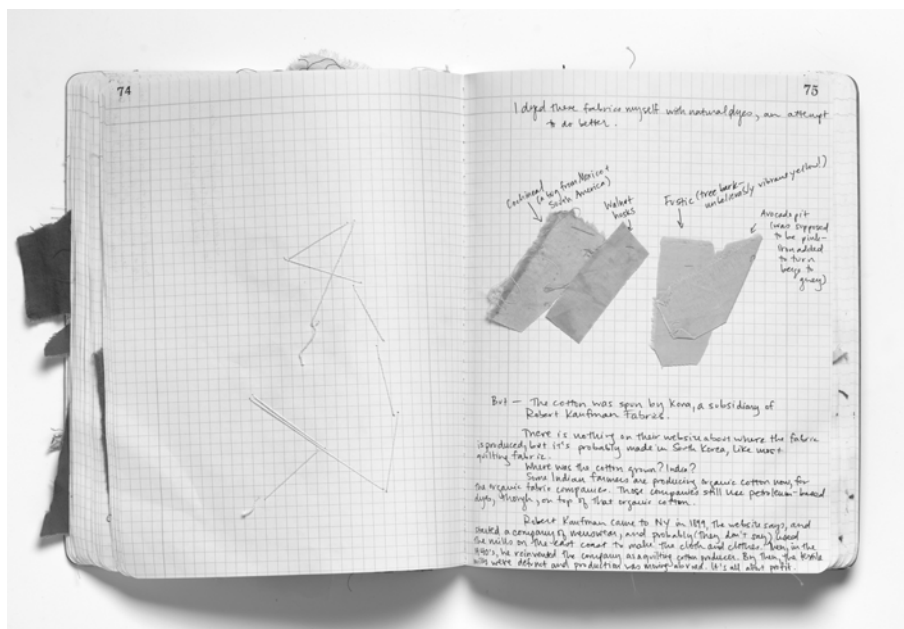 74
75
I dyed these fabrics myself with natural dyes, an attempt
to do better.
Cochineal
(a bug from Mexico +
South America)
Walnut
husks
Fustic (tree bark–
unbelievably vibrant yellow!)
Avocado pit
(was supposed
to be pink–
iron added
to turn
beige to
grey)
But — The cotton was spun by Kona, a subsidiary of
Robert Kaufman Fabrics.
There is nothing on their website about where the fabric
is produced, but it's probably made in South Korea, like most
quilting fabric.
Where was the cotton grown? India?
Some Indian farmers are producing organic cotton now, for
the organic fabric companies. Those companies still use petroleum-based
dyes, though, on top of that organic cotton.
Robert Kaufman came to NY in 1899, the website says, and
started a company of menswear, and probably (they don't say) used
the mills on the east coast to make the cloth and clothes. Then, in the
1940's, he reinvented the company as a quilting cotton producer. By then, the textile
mills were defunct and production was moving abroad. It's all about profit.